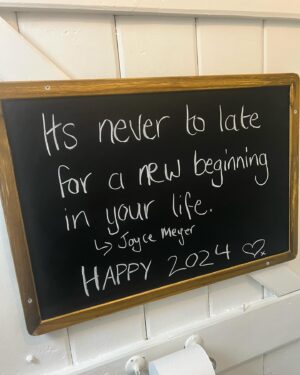 Its never to late
for a new beginning
in your life.
↳ Joyce Meyer
HAPPY 2024 ♡x